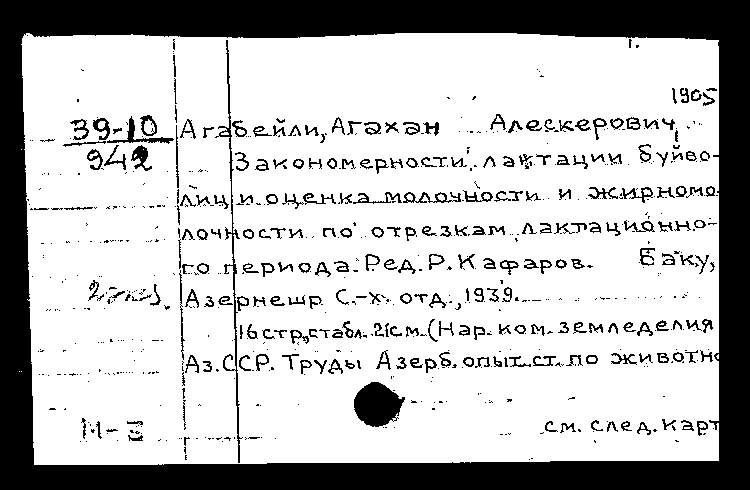 1905
39-10 Агабейли, Агахан Алескерович,
942 Закономерности лактации буйво-
лиц и оценка молочности и жирномо
лочности по отрезкам лактационно-
го периода. Ред. Р. Кафаров. Баку,
2 экз. Азернешр С.-х. отд., 1939.
16 стр., с табл. 21 см. (Нар. ком. земледелия
Аз.ССР. Труды Азерб. опыт. ст. по животно
см. след. карт